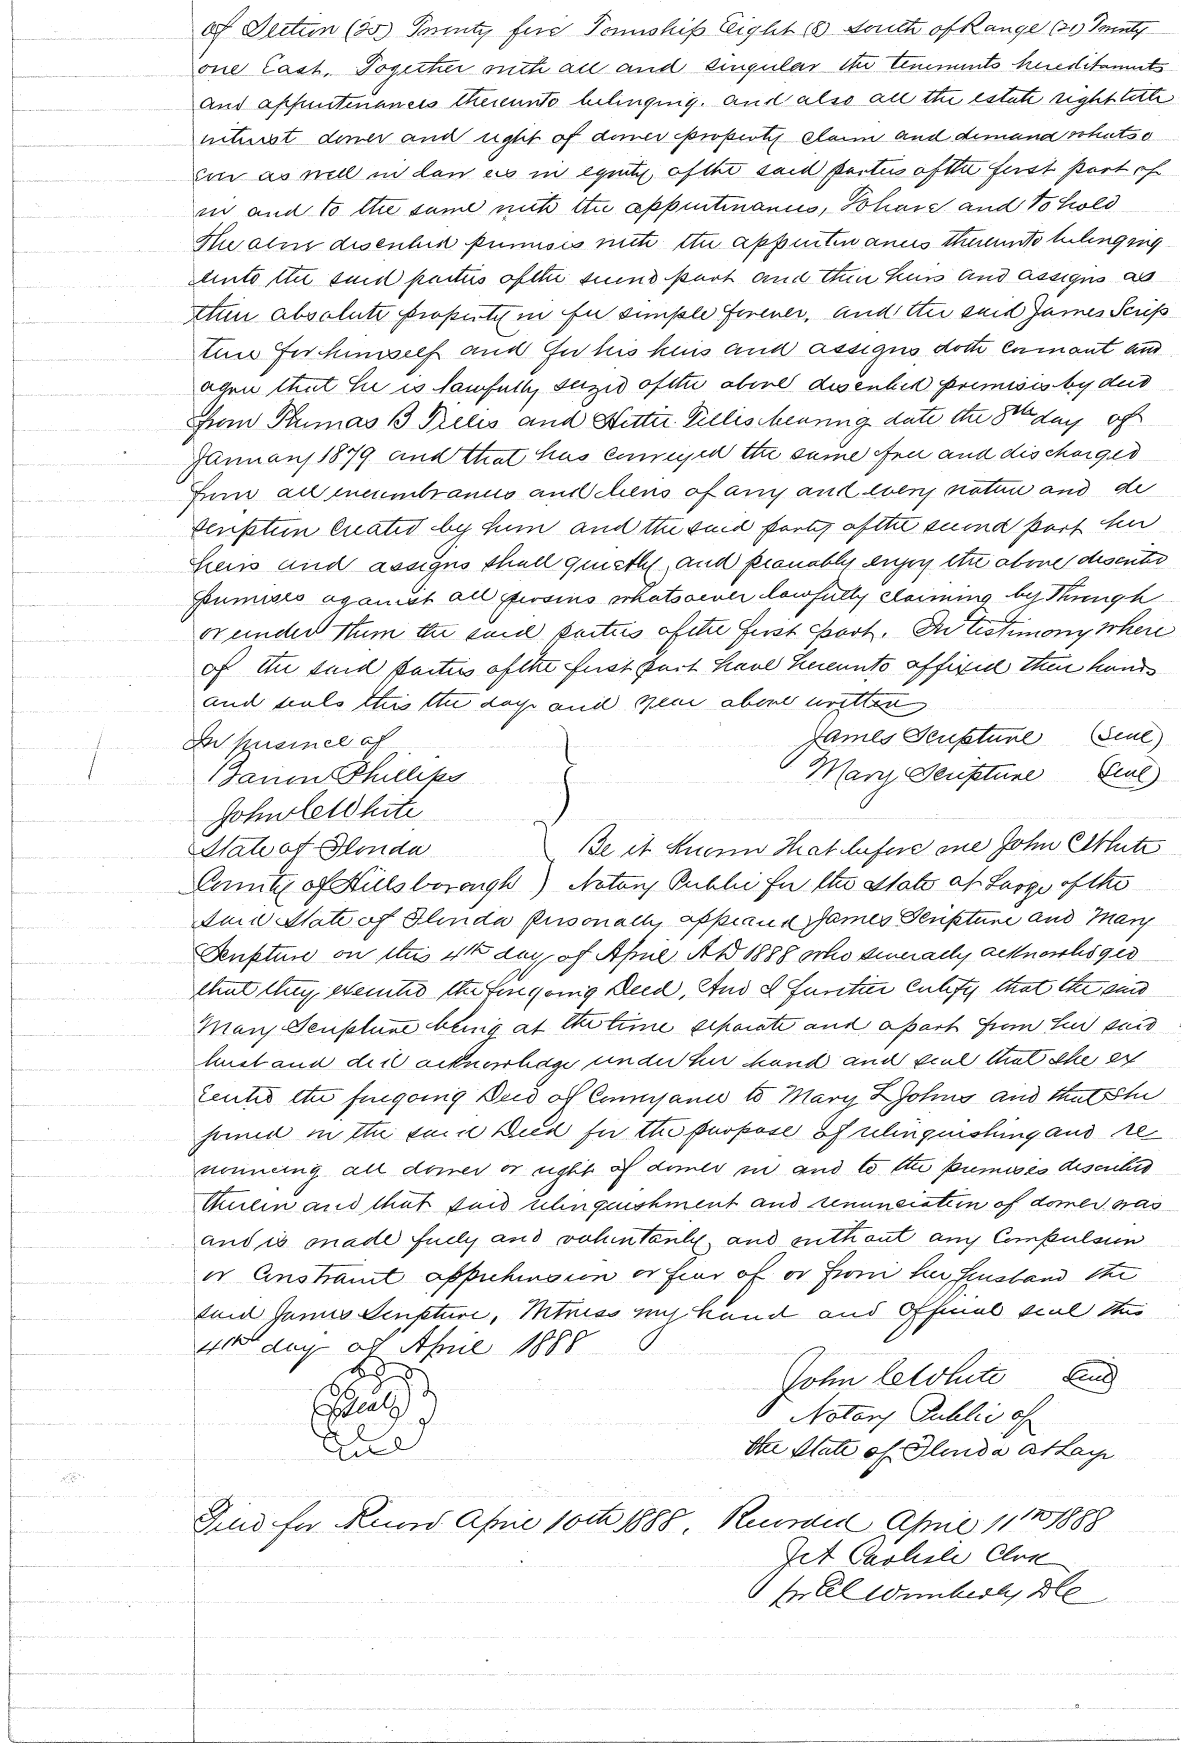 of Section (25) Twenty five Township Eight (8) South of Range (21) Twenty
one East. Together with all and singular the tenements hereditaments
and appurtenances thereunto belonging. and also all the estate right title
interest dower and right of dower property claim and demand whatso
ever as well in law as in equity of the said parties of the first part of
in and to the same with the appurtenances, To have and to hold
The above described premises with the appurtenances thereunto belonging
unto the said parties of the second part and their heirs and assigns as
their absolute property in fee simple forever, and the said James Scrip
ture for himself and for his heirs and assigns doth covenant and
agree that he is lawfully seized of the above described premises by deed
from Thomas B and Hettie bearing date the 8th day of
January 1879 and that has conveyed the same free and discharged
from all incumbrances and liens of any and every nature and de
scription created by him and the said party of the second part her
heirs and assigns shall quietly and peaceably enjoy the above described
premises against all persons whatsoever lawfully claiming by Through
or under Them the said parties of the first part. In testimony Where
of the said parties of the first part have hereunto affixed their hands
and seals this the day and year above written
In presence of James Scripture (Seal)
Phillips Mary Scripture (Seal)
John C White
State of Florida Be it Known That before me John C White
County of Hillsborough ) Notary Public for the State at Large of the
said State of Florida personally appeared James Scripture and Mary
Scripture on this 4th day of April AD 1888 who severally acknowledged
that they executed the foregoing Deed, And I further certify that the said
Mary Scripture being at the time separate and apart from her said
husband did acknowledge under her hand and seal that she ex
ecuted the foregoing Deed of Conveyance to Mary L Johns and that She
joined in the said Deed for the purpose of relinquishing and re
nouncing all dower or right of dower in and to the premises described
therein and that said relinquishment and renunciation of dower was
and is made freely and voluntarily and without any Compulsion
or Constraint apprehension or fear of or from her husband the
said James Scripture, Witness my hand and Official seal this
4th day of April 1888
John C White Seal
Seal
Notary Public of
Seal
the State of Florida at Large
Filed for Record April 10th 1888. Recorded April 11th 1888
Carlisle Clerk
Wimberly DC